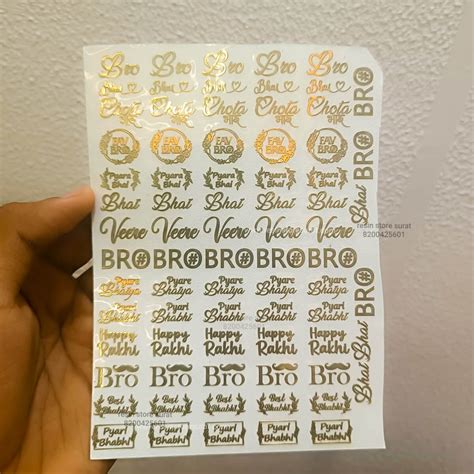 Bro Bro Bro Bro Bro
Bhai Bhai Bhai Bhai Bhai
Chota Chota Chota Chota Chota
भाई भाई भाई भाई भाई
FAV FAV FAV FAV FAV
BRO BRO BRO BRO BRO
Pyara Pyara Pyara Pyara Pyara
Bhai Bhai Bhai Bhai Bhai
Bhai Bhai Bhai Bhai Bhai
Veere Veere Veere Veere Veere
BRO BRO BRO BRO BRO
Pyare Pyare Pyare Pyare Pyare
Bhaiya Bhaiya Bhaiya Bhaiya Bhaiya
Pyari Pyari Pyari Pyari Pyari
Bhabhi Bhabhi Bhabhi Bhabhi Bhabhi
Happy Happy Happy Happy Happy
Rakhi Rakhi Rakhi Rakhi Rakhi
Bro Bro Bro Bro Bro
Best Best Best Best Best
Bhabhi Bhabhi Bhabhi Bhabhi Bhabhi
Pyari Pyari Pyari Pyari Pyari
Bhabhi Bhabhi Bhabhi Bhabhi Bhabhi
BRO
BRO
Bhai
BRO
Bhai Bhai
resin store surat
8200425601
resin store surat
8200425601